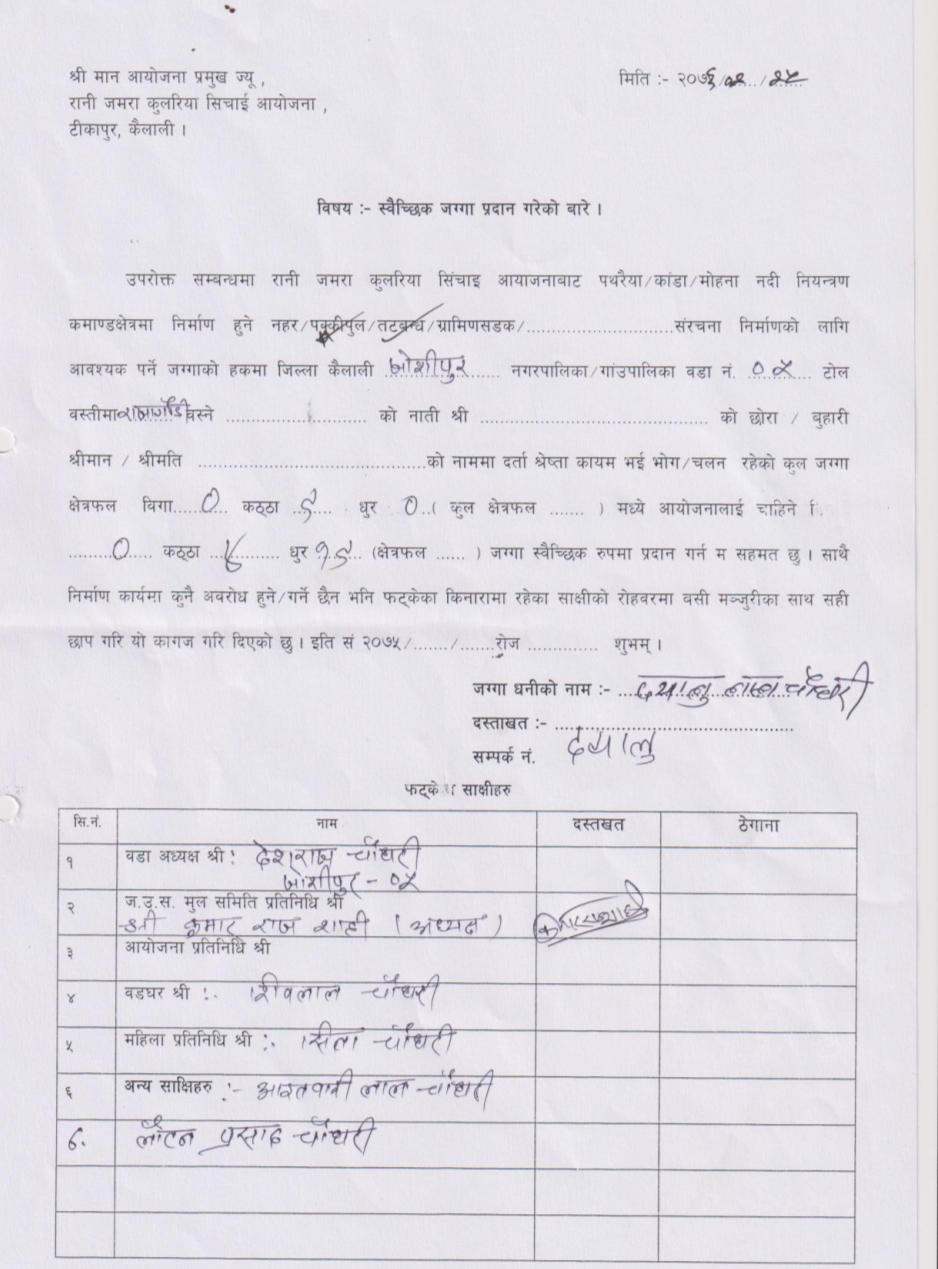 श्री मान आयोजना प्रमुख ज्यू ,
मिति :- २०७६/०२/२५
रानी जमरा कुलरिया सिचाई आयोजना ,
टीकापुर, कैलाली ।
विषय :- स्वैच्छिक जग्गा प्रदान गरेको बारे ।
उपरोक्त सम्बन्धमा रानी जमरा कुलरिया सिंचाइ आयाजनाबाट पथरैया/कांडा/मोहना नदी नियन्त्रण
कमाण्डक्षेत्रमा निर्माण हुने नहर/पक्कीपुल/तटबन्ध/ग्रामिणसडक/..............................संरचना निर्माणको लागि
आवश्यक पर्ने जग्गाको हकमा जिल्ला कैलाली जोशीपुर नगरपालिका/गांउपालिका वडा नं. ०५ टोल
वस्तीमा वस्ने ............................ को नाती श्री ............................................. को छोरा / बुहारी
श्रीमान / श्रीमति .............................................को नाममा दर्ता श्रेष्ता कायम भई भोग/चलन रहेको कुल जग्गा
क्षेत्रफल विगा......0... कठ्ठा ...... धुर 0..( कुल क्षेत्रफल ....... ) मध्ये आयोजनालाई चाहिने
.........0.... कठ्ठा ............ धुर ...... (क्षेत्रफल ...... ) जग्गा स्वैच्छिक रुपमा प्रदान गर्न म सहमत छु । साथै
निर्माण कार्यमा कुनै अवरोध हुने/गर्ने छैन भनि फट्केका किनारामा रहेका साक्षीको रोहवरमा वसी मञ्जुरीका साथ सही
छाप गरि यो कागज गरि दिएको छु । इति सं २०७५/......../.......रोज .............. शुभम् ।
जग्गा धनीको नाम :- दयालु लाल चौधरी
दस्ताखत :- ................................................
सम्पर्क नं. दयालु
फट्के साक्षीहरु
सि.नं. नाम दस्तखत ठेगाना
१ वडा अध्यक्ष श्री : देशराज चौधरी
जोशीपुर - ०५
२ ज.उ.स. मुल समिति प्रतिनिधि श्री
श्री कुमार राज शाही ( अध्यक्ष )
३ आयोजना प्रतिनिधि श्री
४ वडघर श्री :. शिवलाल चौधरी
५ महिला प्रतिनिधि श्री :. सिता चौधरी
६ अन्य साक्षिहरु :- लाल चौधरी
लौटन प्रसाद चौधरी